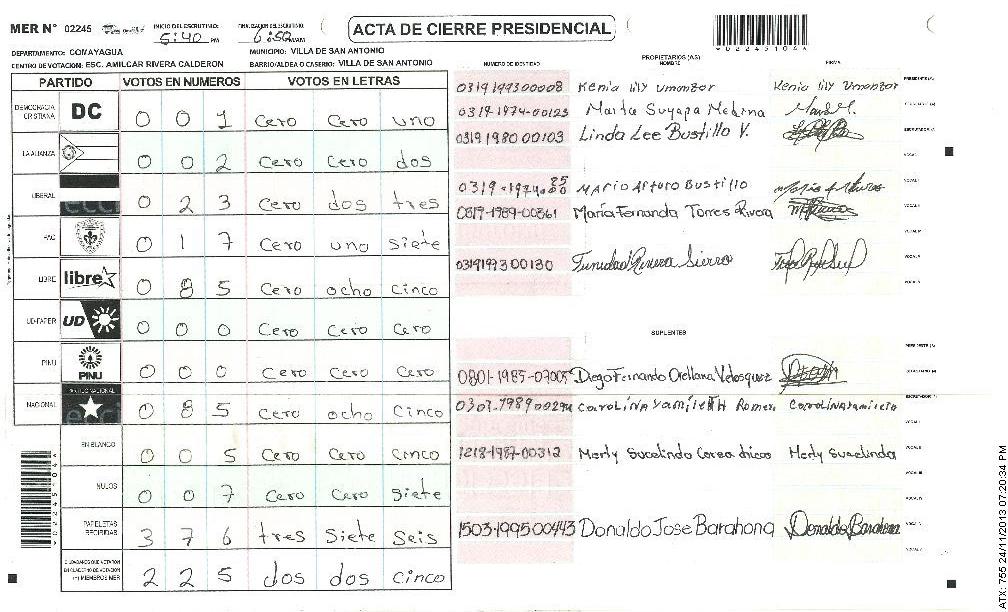 MER N° 02245 INICIO DEL ESCRUTINIO: 5:40 PM FINALIZACION DEL ESCRUTINIO: 6:50 PM/AM
ACTA DE CIERRE PRESIDENCIAL
02245104A
DEPARTAMENTO: COMAYAGUA MUNICIPIO: VILLA DE SAN ANTONIO
CENTRO DE VOTACION: ESC. AMILCAR RIVERA CALDERON BARRIO/ALDEA O CASERIO: VILLA DE SAN ANTONIO
PARTIDO VOTOS EN NUMEROS VOTOS EN LETRAS
DEMOCRACIA CRISTIANA DC 0 0 1 cero cero uno
LA ALIANZA 0 0 2 cero cero dos
LIBERAL 0 2 3 cero dos tres
PAC 0 1 7 cero uno siete
LIBRE libre 0 8 5 cero ocho cinco
UD-FAPER UD 0 0 0 cero cero cero
PINU PINU 0 0 0 cero cero cero
NACIONAL 0 8 5 cero ocho cinco
EN BLANCO 0 0 5 cero cero cinco
NULOS 0 0 7 cero cero siete
PAPELETAS RECIBIDAS 3 7 6 tres siete seis
CIUDADANOS QUE VOTARON EN CUADERNO DE VOTACION (+) MIEMBROS MER 2 2 5 dos dos cinco
NUMERO DE IDENTIDAD PROPIETARIOS (AS) NOMBRE FIRMA
0319199300008 Kenia lily Umanzor Kenia lily Umanzor
0319-1974-00123 Marta Suyapa Medina
0319198000103 Linda Lee Bustillo V.
0319-1974 Mario Arturo Bustillo
0819-1989-00361 María Fernanda Torres Rivera
0319199300130 Trinidad Rivera Sierra
SUPLENTES
0801-1985-07005 Diego Fernando Orellana Velasquez
Carolina Yamileth Romero Carolina Yamileth
1218-1987-00312 Merly Sucelinda Corea Merly Sucelinda
1503-1995-00443 Donaldo Jose Barahona Donaldo Barahona
ATX: 755 24/11/2013 07:20:34 PM